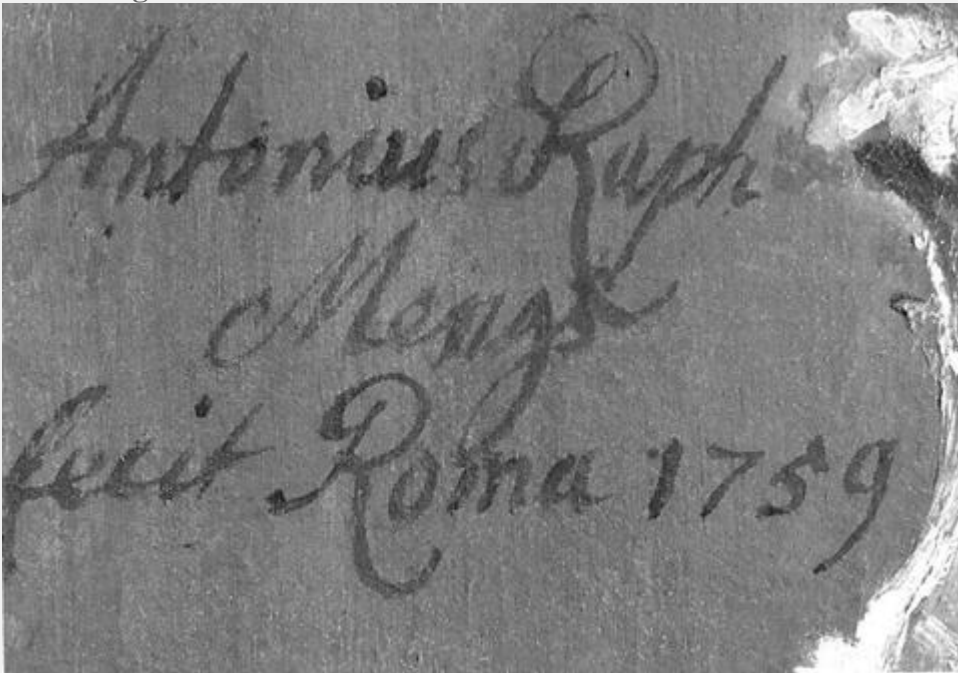 Antonius Raph
Mengs
fecit Roma 1759